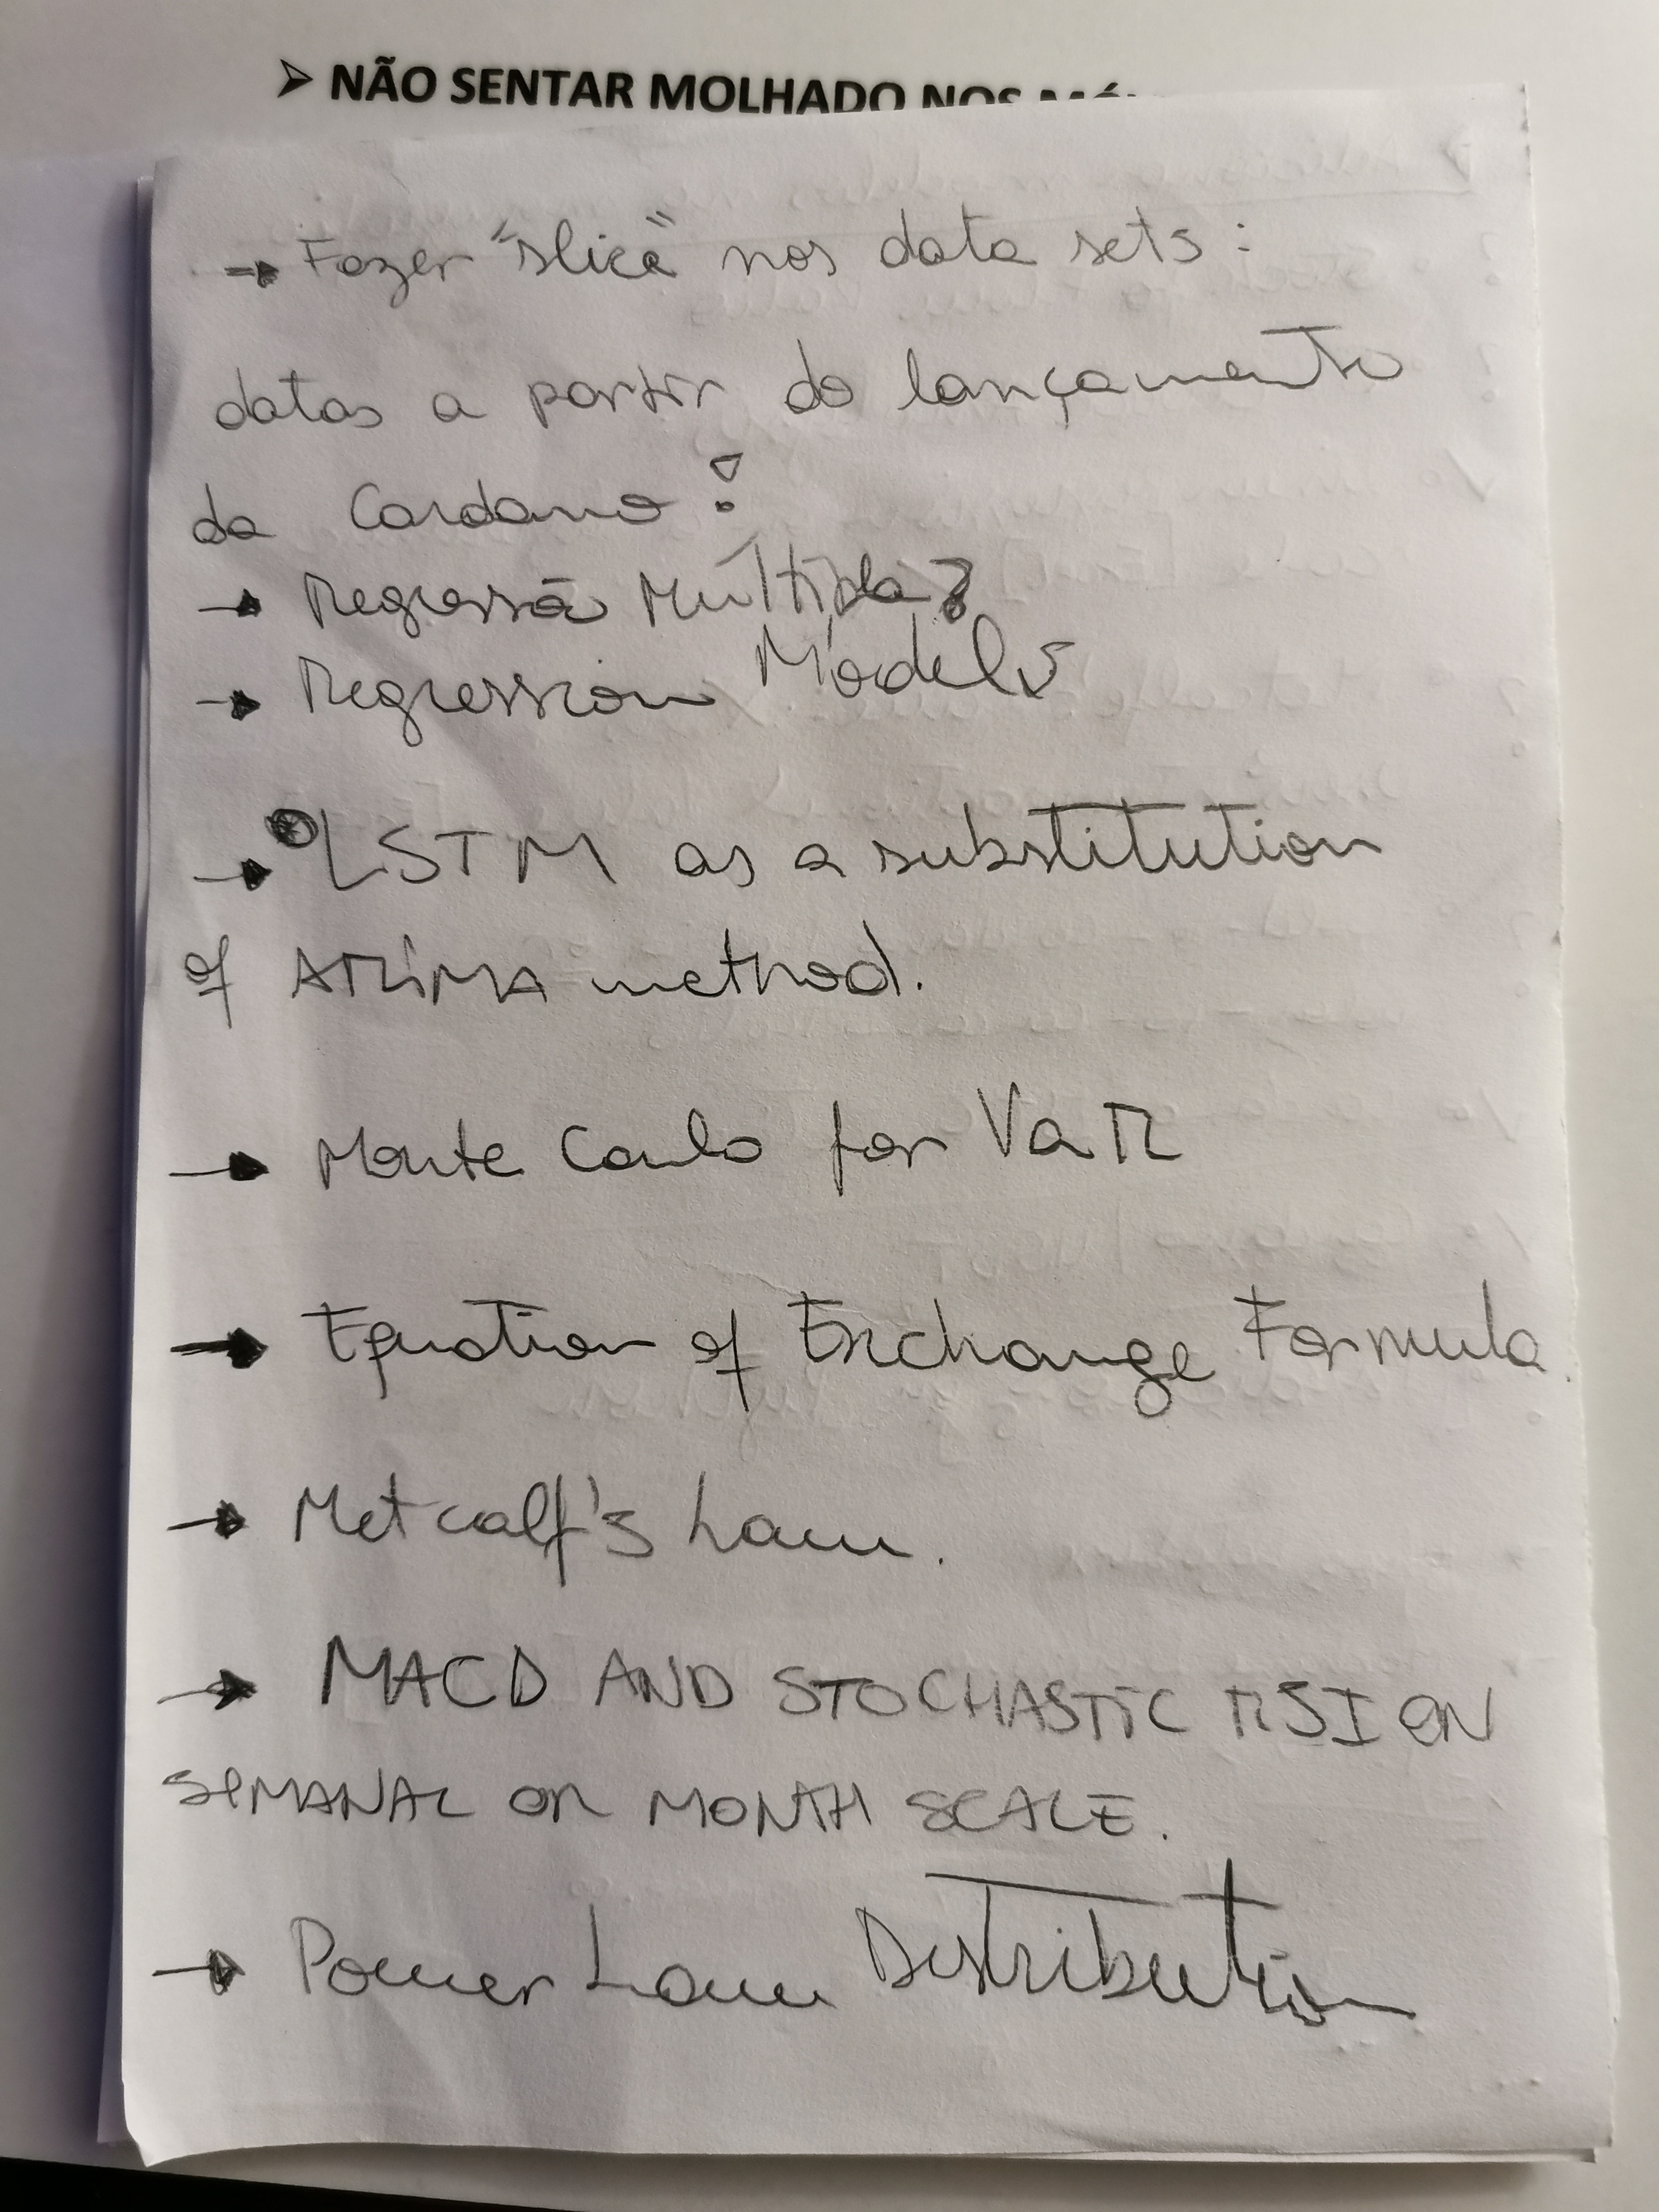 ➢ NÃO SENTAR MOLHADO NOS
→ Fazer "slice" nos data sets:
datas a partir do lançamento
da Cardano!
→ Regressão Múltipla?
→ Regression Models
→ LSTM as a substitution
of ARIMA method.
→ Monte Carlo for VaR
→ Equation of Exchange Formula.
→ Metcalf's Law.
→ MACD AND STOCHASTIC RSI ON
SEMANAL OR MONTH SCALE.
→ Power Law Distribution